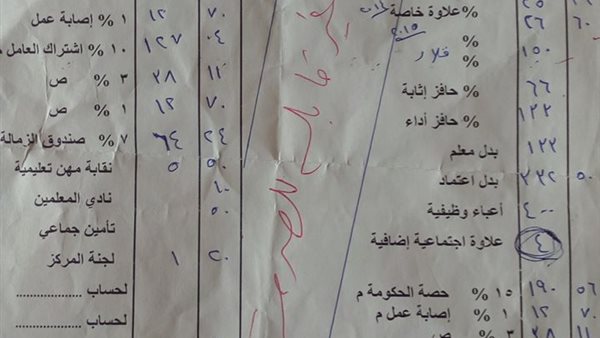 % علاوة خاصة
٦٠ ٢٦ % ٢٠١٥
١٥٠ %
٦٦ % حافز إثابة
١٢٢ % حافز أداء
١٢٢ بدل معلم
٥٠ ٣٣٢ بدل اعتماد
٤٠٠ أعباء وظيفية
٤ علاوة اجتماعية إضافية
٥٦ ١٩٠ ١٥ % حصة الحكومة م
٧٠ ١٢ ١ % إصابة عمل م
١١ ٣٨ ٣ % ص
٧٠ ١٢ ١ % إصابة عمل
٠٤ ١٢٧ ١٠ % اشتراك العامل
١١ ٣٨ ٣ % ص
٧٠ ١٢ ١ % ص
٢٤ ٦٤ ٧ % صندوق الزمالة
٥٠ ٥ نقابة مهن تعليمية
٦٠ نادي المعلمين
٥٠ تأمين جماعي
٢٠ ١ لجنة المركز
لحساب ....................
لحساب ....................